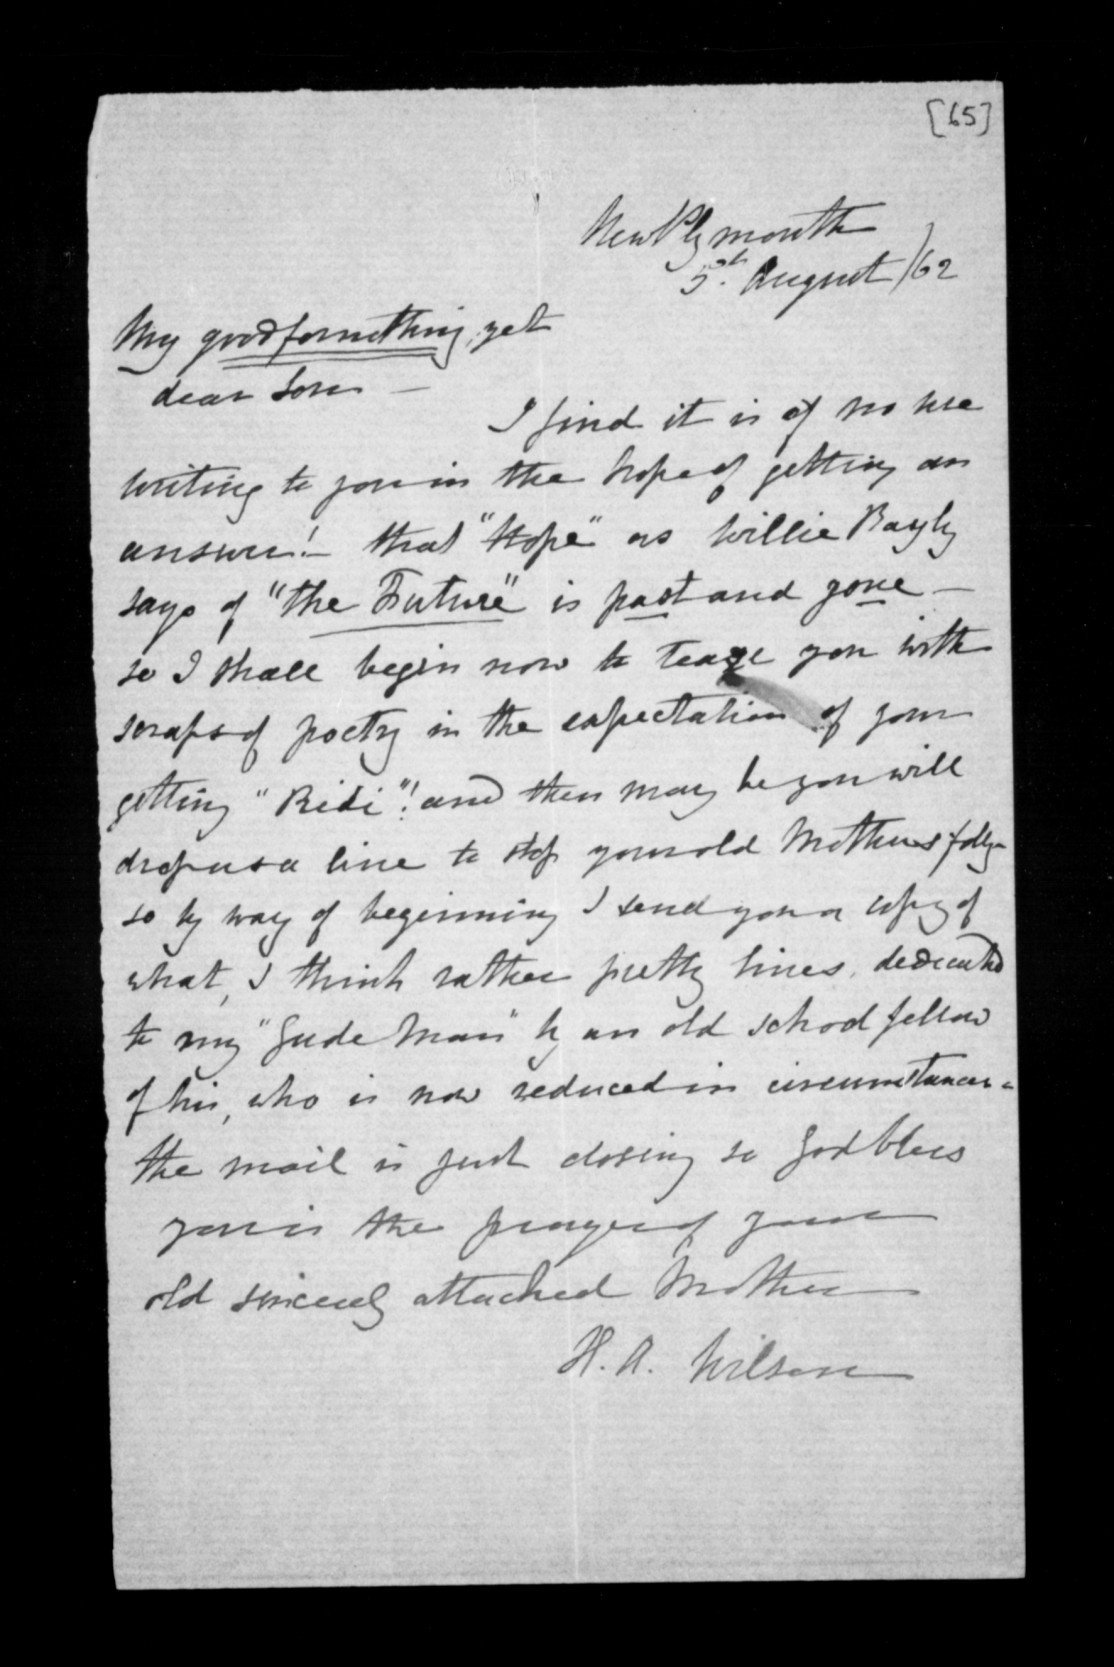 [65]
New Plymouth
5th August /62
My goodfornothing, yet
dear Son —
I find it is of no use
writing to you in the hope of getting an
answer! — that "Hope" as Willie Bayly
says of "the Future" is past and gone —
so I shall begin now to tease you with
scraps of poetry in the expectation of your
getting "Ridi"! and then may be you will
drop us a line to stop your old Mothers folly —
so by way of beginning I send you a copy of
what, I think rather pretty lines, dedicated
to my "Gude Man" by an old school fellow
of his, who is now reduced in circumstances —
the mail is just closing so God bless
you is the prayer of your
old sincerely attached Mother
H. A. Wilson